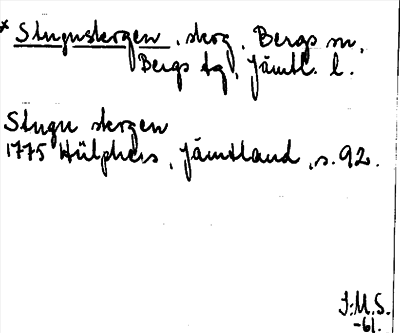 * Stuguskogen, skog, Bergs sn,
Bergs tg, Jämtl. l.
Stugu skogen
1775 Hülphers, Jämtland, s. 92.
I.M.S.
-61.